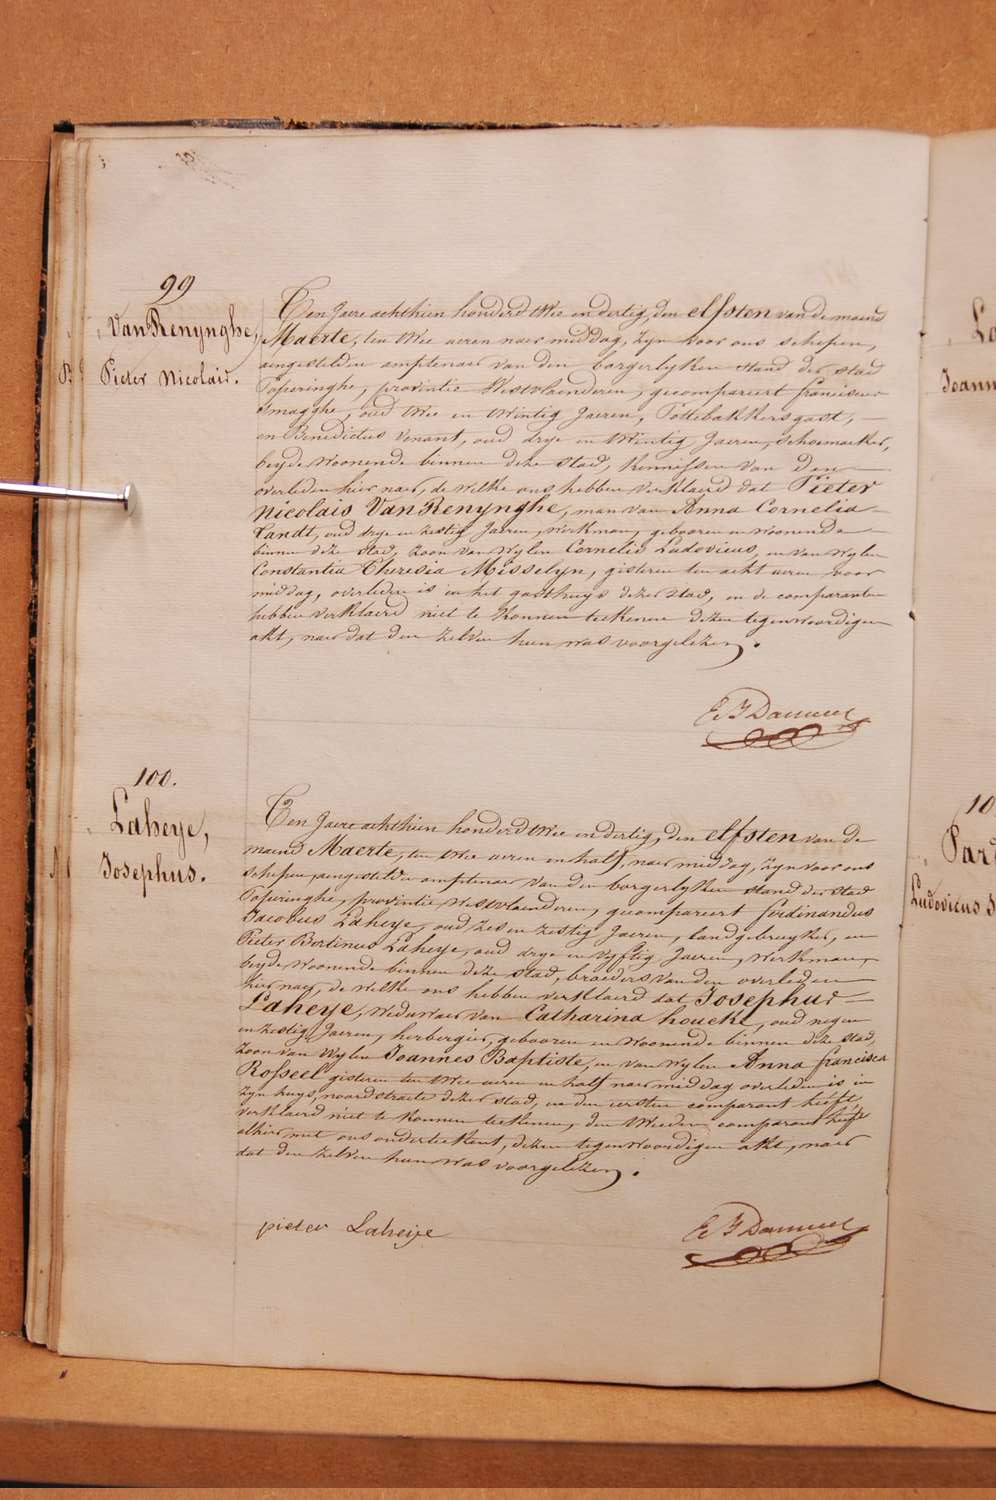 99
VanRenynghe,
Pieter Nicolais.
Ten Jaere achthien honderd twee en dertig, den elfsten van de maend
Maerte, ten twee ueren naer middag, zyn voor ons schepen,
aengestelden amptenaer van den borgerlyken stand der stad
Poperinghe, provintie Westvlaenderen, gecompareert franciscus
Smagghe, oud twee en twintig Jaeren, Pottebakkersgast,
en Benedictus Venant, oud drye en twintig Jaeren, schoemaeker,
beyde woonende binnen deze stad, kennissen van den
overleden hier naer, de welke ons hebben verklaerd dat Pieter
Nicolais VanRenynghe, man van Anna Cornelia
Candt, oud drye en zestig Jaeren, werkman, gebooren en woonende
binnen deze stad, zoon van wylen Cornelis Ludovicus, en van wylen
Constantia Theresia Misselyn, gisteren ten acht ueren voor
middag, overleden is in het gasthuys dezer stad, en de comparanten
hebben verklaerd niet te konnen teekenen dezen tegenwoordigen
akt, naer dat den zelven hun was voorgelezen.
100.
Laheye,
Josephus.
Ten Jaere achthien honderd twee en dertig, den elfsten van de
maend Maerte, ten twee ueren en half, naer middag, zyn voor ons
schepen, aengestelden amptenaer van den borgerlyken stand der stad
Poperinghe, provintie Westvlaenderen, gecompareert ferdinandus
Jacobus Laheye, oud zes en zestig Jaeren, landgebruyker, en
Pieter Bertinus Laheye, oud drye en vyftig Jaeren, werkman,
beyde woonende binnen deze stad, broeders van den overleden
hier naer, de welke ons hebben verklaerd dat Josephus
Laheye, weduwaer van Catharina houcke, oud negen
en zestig Jaeren, herbergier, gebooren en woonende binnen deze stad,
zoon van wylen Joannes Baptiste, en van wylen Anna francisca
Rosseel gisteren ten twee ueren en half naer middag overleden is in
zyn huys, noordstraete dezer stad, en den eersten comparant heeft
verklaerd niet te konnen teekenen, den tweeden comparant heeft
alhier met ons onderteekent, dezen tegenwoordigen akt, naer
dat den zelven hun was voorgelezen.
pieter Laheije
Joann
10
Pard
Ludovicus